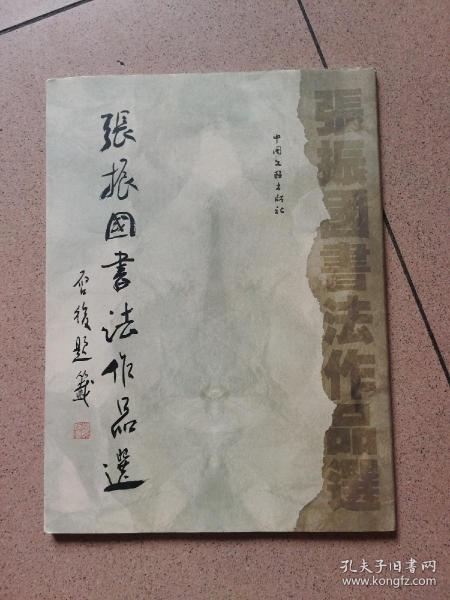 張振國書法作品選
中国文聯出版社
張振國書法作品選
启後題籤
孔夫子旧书网
www.kongfz.com